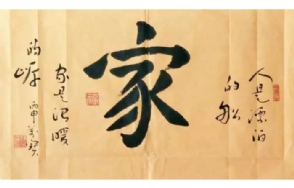 人是漂泊
的船
家
家是温暖
的岸
丙申